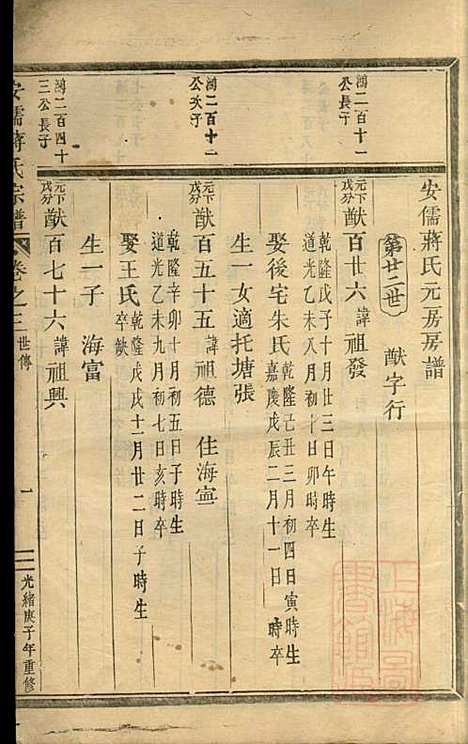 安儒蔣氏元房房譜
第廿二世　猷字行
鴻二百十一
公長子
元下
戊分
猷百廿六　諱祖發
乾隆戊子十月廿三日午時生
道光乙未八月初十日卯時卒
娶後宅朱氏
乾隆己丑三月初四日寅時生
嘉慶戊辰二月十一日　時卒
生一女適托塘張
鴻二百十二
公次子
元下
戊分
猷百五十五　諱祖德　住海寧
乾隆辛卯十月初五日子時生
道光乙未九月初七日亥時卒
娶王氏
乾隆戊戌十一月廿二日子時生
卒缺
生一子　海富
鴻二百四十
三公長子
元下
戊分
猷百七十六　諱祖興
安儒蔣氏宗譜　卷之三　世傳　一　光緒庚子年重修
上海圖書館藏